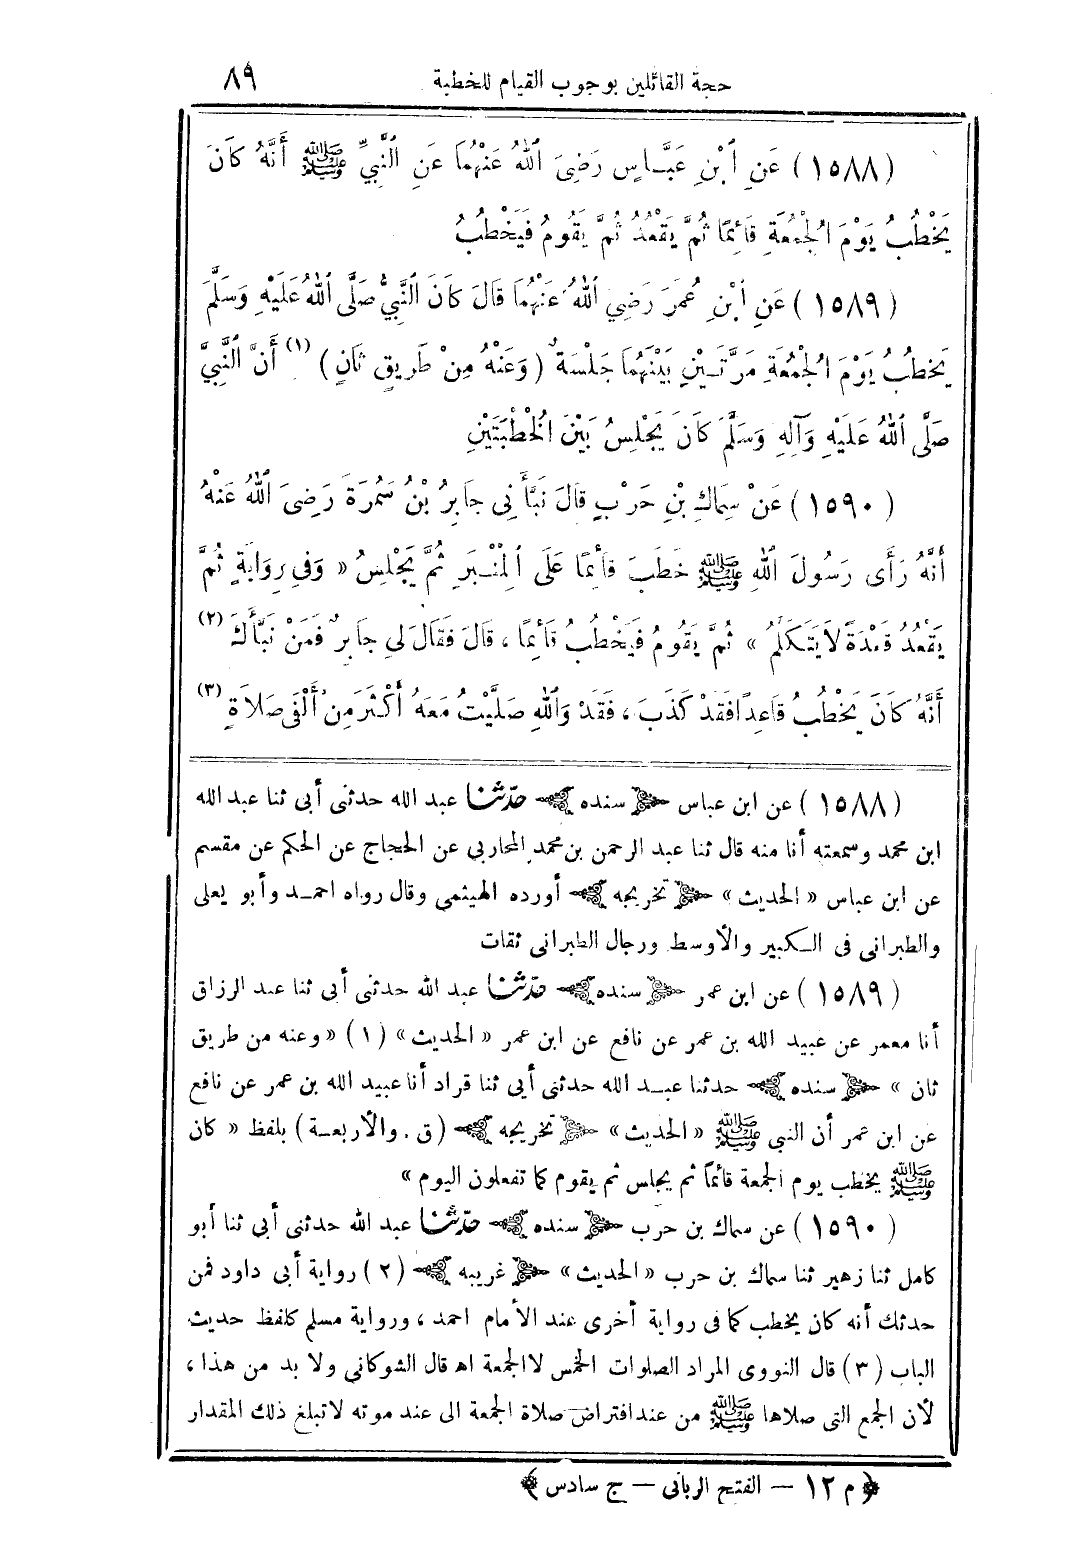 حجة القائلين بوجوب القيام للخطبة ٨٩
(١٥٨٨) عَنِ ٱبْنِ عَبَّاسٍ رَضِىَ ٱللهُ عَنْهُمَا عَنِ ٱلنَّبِيِّ ﷺ أَنَّهُ كَانَ
يَخْطُبُ يَوْمَ ٱلْجُمُعَةِ قَائِمًا ثُمَّ يَقْعُدُ ثُمَّ يَقُومُ فَيَخْطُبُ
(١٥٨٩) عَنِ ٱبْنِ عُمَرَ رَضِيَ ٱللهُ عَنْهُمَا قَالَ كَانَ ٱلنَّبِيُّ صَلَّى ٱللهُ عَلَيْهِ وَسَلَّمَ
يَخْطُبُ يَوْمَ ٱلْجُمُعَةِ مَرَّتَيْنِ بَيْنَهُمَا جَلْسَةٌ (وَعَنْهُ مِنْ طَرِيقٍ ثَانٍ) (١) أَنَّ ٱلنَّبِيَّ
صَلَّى ٱللهُ عَلَيْهِ وَآلِهِ وَسَلَّمَ كَانَ يَجْلِسُ بَيْنَ ٱلْخُطْبَتَيْنِ
(١٥٩٠) عَنْ سِمَاكِ بْنِ حَرْبٍ قَالَ نَبَّأَنِى جَابِرُ بْنُ سَمُرَةَ رَضِىَ ٱللهُ عَنْهُ
أَنَّهُ رَأَى رَسُولَ ٱللهِ ﷺ خَطَبَ قَائِمًا عَلَى ٱلْمِنْبَرِ ثُمَّ يَجْلِسُ « وَفِى رِوَايَةٍ ثُمَّ
يَقْعُدُ قَعْدَةً لَا يَتَكَلَّمُ » ثُمَّ يَقُومُ فَيَخْطُبُ قَائِمًا ، قَالَ فَقَالَ لِى جَابِرٌ فَمَنْ نَبَّأَكَ (٢)
أَنَّهُ كَانَ يَخْطُبُ قَاعِدًا فَقَدْ كَذَبَ ، فَقَدْ وَٱللهِ صَلَّيْتُ مَعَهُ أَكْثَرَ مِنْ أَلْفَىْ صَلَاةٍ (٣)
(١٥٨٨) عن ابن عباس ﴿ سنده ﴾ حدّثنا عبد الله حدثنى أبى ثنا عبد الله
ابن محمد وسمعته أنا منه قال ثنا عبد الرحمن بن محمد المحاربي عن الحجاج عن الحكم عن مقسم
عن ابن عباس « الحديث » ﴿ تخريجه ﴾ أورده الهيثمى وقال رواه احمـد وأبو يعلى
والطبرانى فى الـكبير والأوسط ورجال الطبرانى ثقات
(١٥٨٩) عن ابن عمر ﴿ سنده ﴾ حدّثنا عبد الله حدثنى أبى ثنا عبد الرزاق
أنا معمر عن عبيد الله بن عمر عن نافع عن ابن عمر « الحديث » (١) « وعنه من طريق
ثان » ﴿ سنده ﴾ حدثنا عبـد الله حدثنى أبى ثنا قراد أنا عبيد الله بن عمر عن نافع
عن ابن عمر أن النبي ﷺ « الحديث » ﴿ تخريجه ﴾ (ق . والأربعـة) بلفظ « كان
ﷺ يخطب يوم الجمعة قائماً ثم يجلس ثم يقوم كما تفعلون اليوم »
(١٥٩٠) عن سماك بن حرب ﴿ سنده ﴾ حدّثنا عبد الله حدثنى أبى ثنا أبو
كامل ثنا زهير ثنا سماك بن حرب « الحديث » ﴿ غريبه ﴾ (٢) رواية أبى داود فمن
حدثك أنه كان يخطب كما فى رواية أخرى عند الأمام احمد ، ورواية مسلم كلفظ حديث
الباب (٣) قال النووى المراد الصلوات الخمس لا الجمعة اه قال الشوكانى ولا بد من هذا ،
لأن الجمع التى صلاها ﷺ من عند افتراض صلاة الجمعة الى عند موته لا تبلغ ذلك المقدار
﴿ م ١٢ — الفتح الربانى — ج سادس ﴾